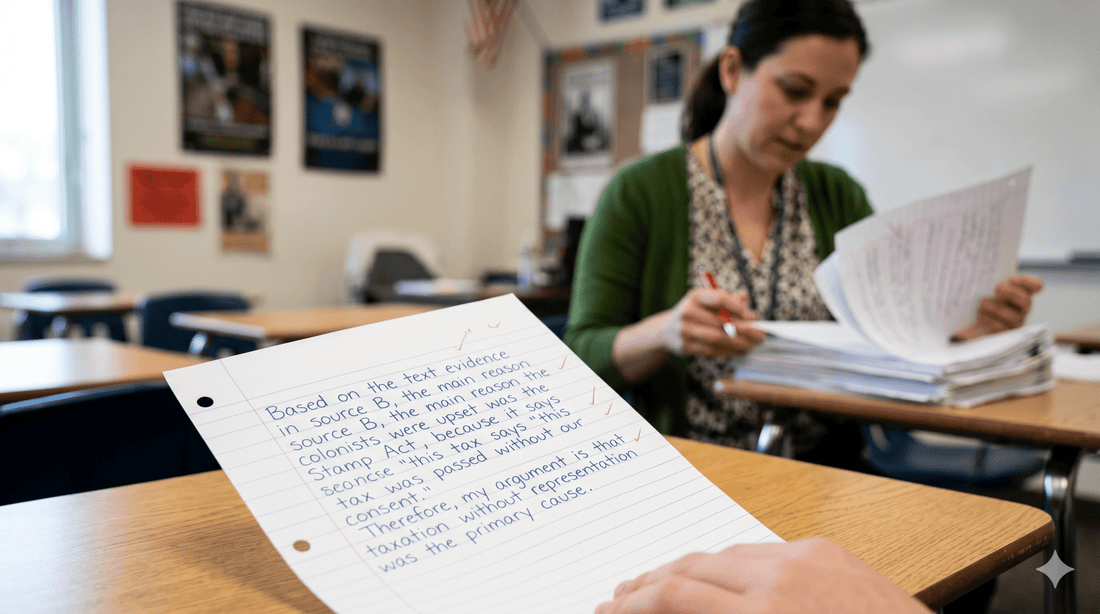 Based on the text evidence
in source B, the main reason
source B, the main reason the
colonists were upset was the
Stamp Act, because it says
seancse "this tax says "this
tax was, passed without our
consent."
Therefore, my argument is that
taxation without representation
was the primary cause.